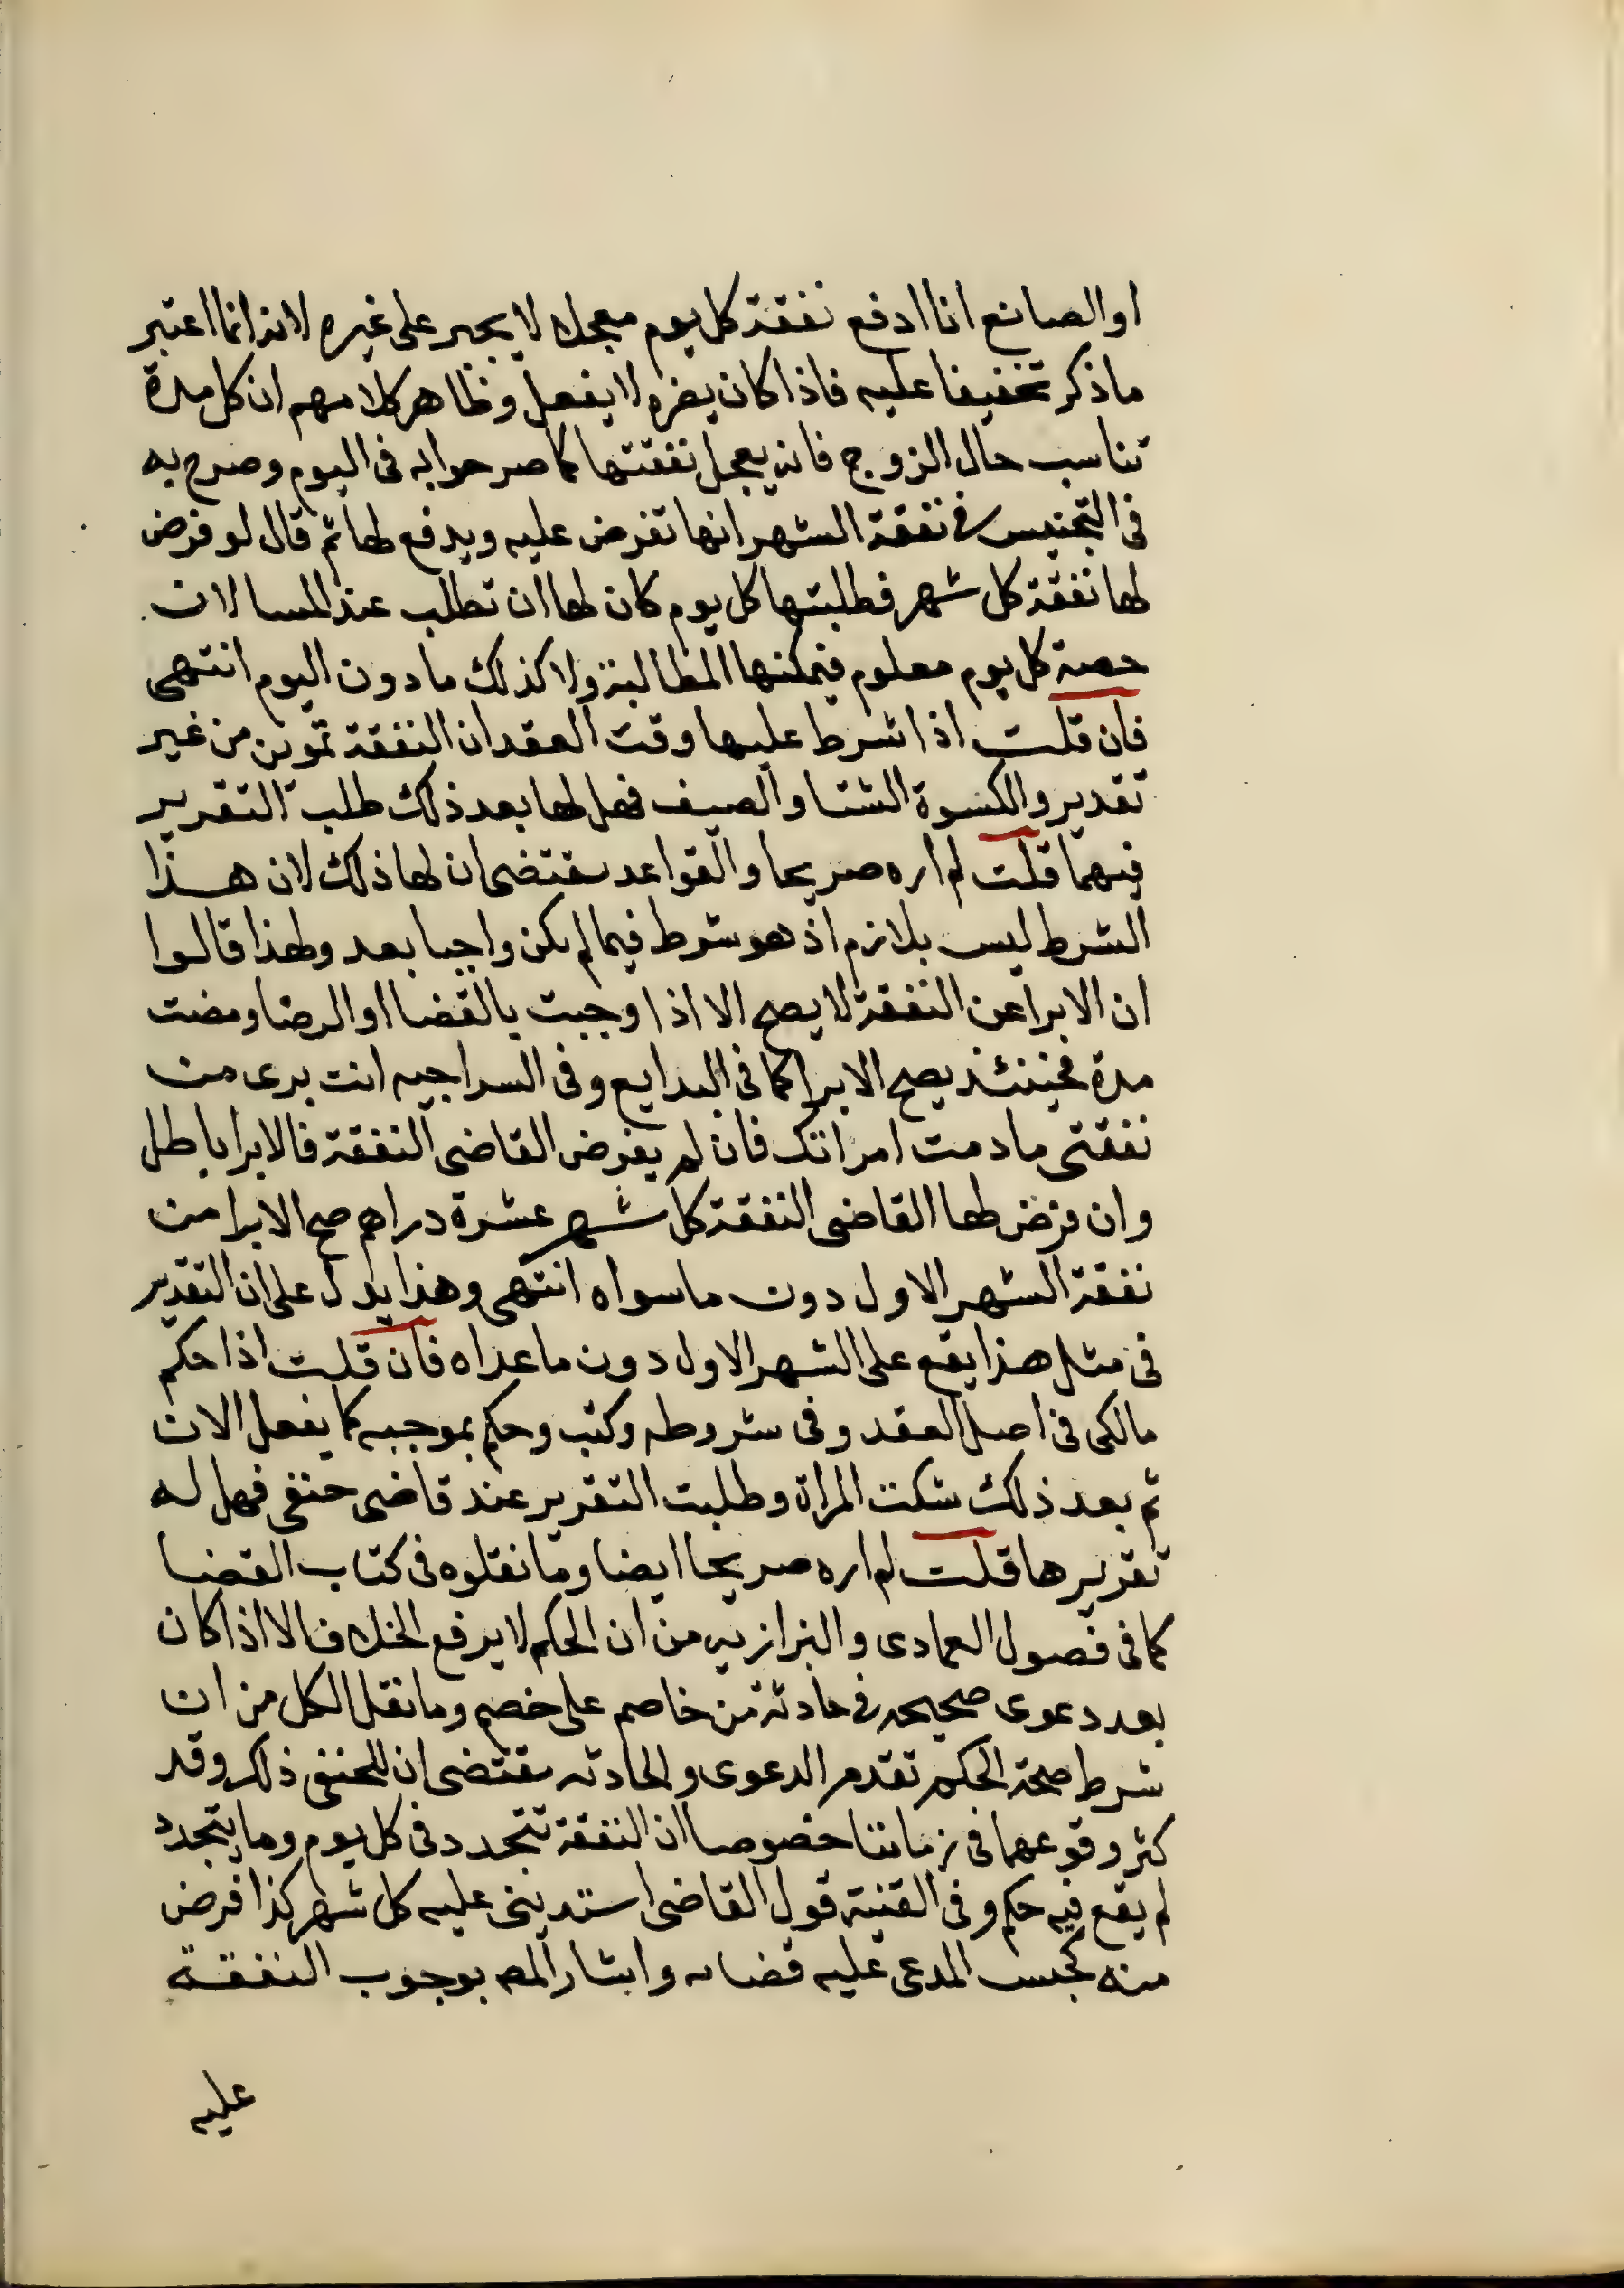 او الصانع انا ادفع نفقة كل يوم معجلا لا يجبر على غيره لانه انما اعتبر
ما ذكر تخفيفا عليه فاذا كان يضره لا يفعل وظاهر كلامهم ان كل مدة
تناسب حال الزوج فانه يعجل نفقتها كما صرحوا به فى اليوم وصرح به
فى التجنيس فى نفقة الشهر انها تفرض عليه ويدفع لها ثم قال لو فرض
لها نفقة كل شهر فطلبتها كل يوم كان لها ان تطلب عند المسا لان
حصة كل يوم معلوم فيمكنها المطالبة ولا كذلك ما دون اليوم انتهى
فان قلت اذا شرط عليها وقت العقد ان النفقة تموين من غير
تقدير والكسوة الشتا والصيف فهل لها بعد ذلك طلب التقدير
فيهما قلت لم اره صريحا والقواعد تقتضى ان لها ذلك لان هذا
الشرط ليس بلازم اذ هو شرط فيما لم يكن واجبا بعد ولهذا قالوا
ان الابرا عن النفقة لا يصح الا اذا وجبت بالقضا او الرضا ومضت
مدة فحينئذ يصح الابرا كما فى البدايع وفى السراجيه انت برى من
نفقتى ما دمت امراتك فان لم يفرض القاضى النفقة فالابرا باطل
وان فرض لها القاضى النفقة كل شهر عشرة دراهم صح الابرا من
نفقة الشهر الاول دون ما سواه انتهى وهذا يدل على ان التقدير
فى مثل هذا يقع على الشهر الاول دون ما عداه فان قلت اذا حكم
مالكى فى اصل العقد وفى شروطه وكتب وحكم بموجبه كما يفعل الان
ثم بعد ذلك شكت المراة وطلبت التقرير عند قاضى حنفى فهل له
تقريرها قلت لم اره صريحا ايضا وما نقلوه فى كتاب القضا
كما فى فصول العمادى والبزازيه من ان الحكم لا يرفع الخلاف الا اذا كان
بعد دعوى صحيحه فى حادثة من خاصم على خصم وما نقل الكل من ان
شرط صحة الحكم تقدم الدعوى والحادثه يقتضى ان للحنفى ذلك وقد
كثر وقوعهما فى زماننا خصوصا ان النفقة تتجدد فى كل يوم وما يتجدد
لم يقع فيه حكم وفى القنية قول القاضى استدينى عليه كل شهر كذا فرض
منه كحبس المدعى عليه قضا به واشار المص بوجوب النفقة
عليه